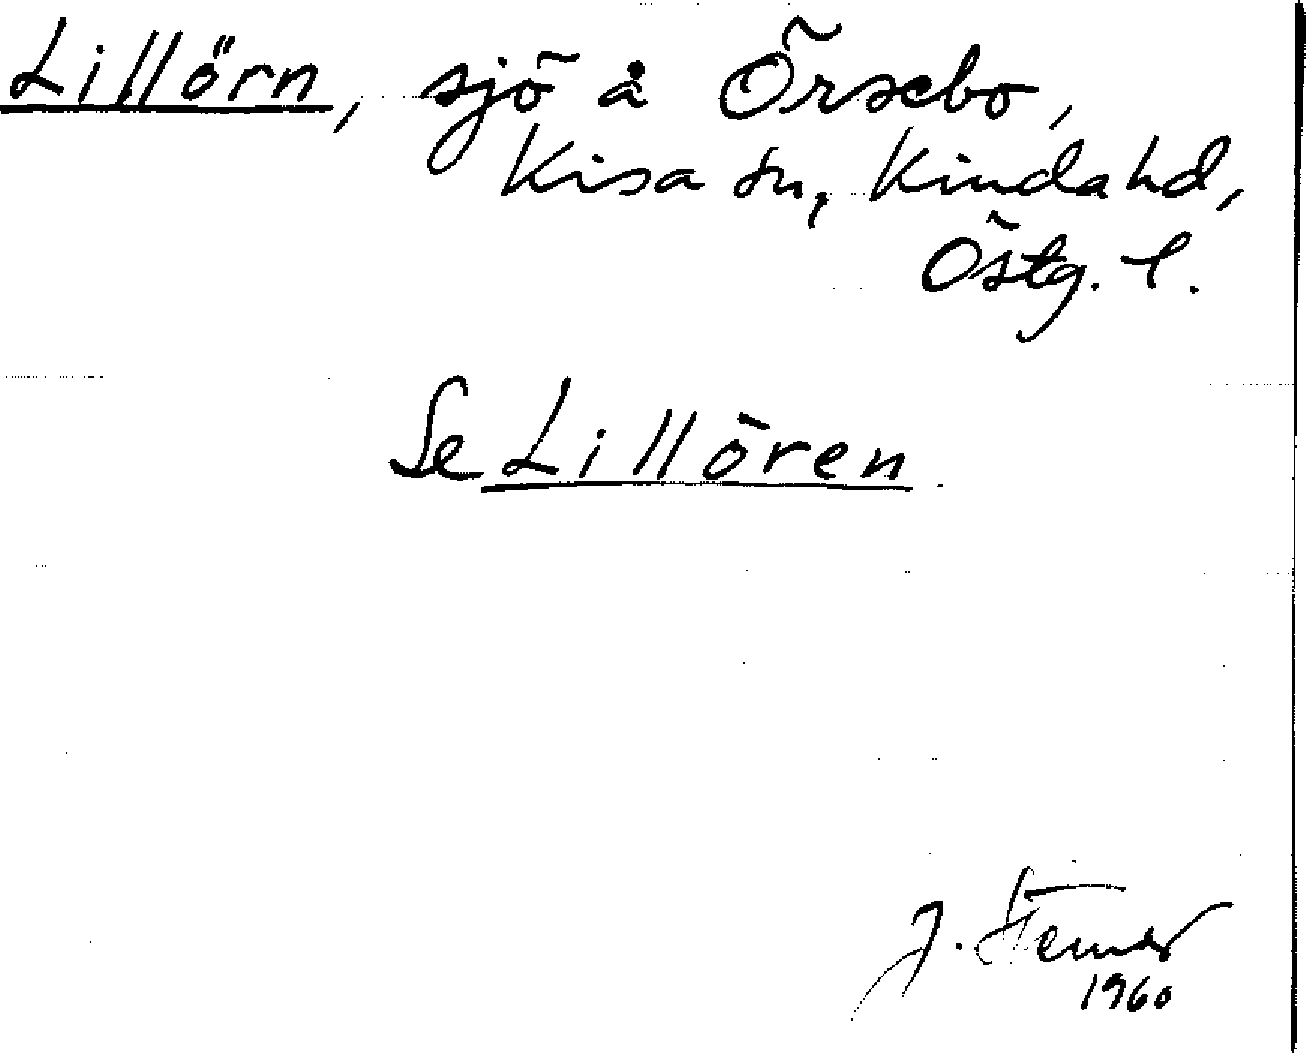 Lillörn, sjö å Örsebo,
Kisa sn, Kinda hd,
Östg. l.
Se Lillören
J.
1960